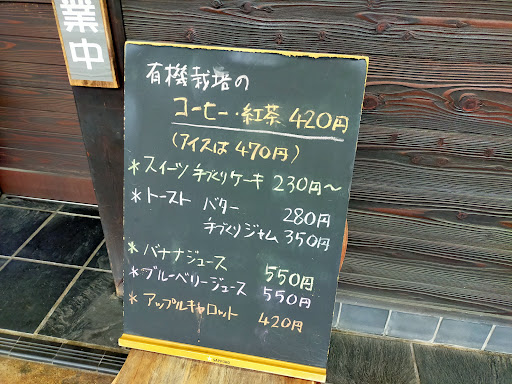 業中
有機栽培の
コーヒー・紅茶 420円
(アイスは 470円)
*スイーツ 手づくりケーキ 230円〜
*トースト バター 280円
手づくりジャム 350円
*バナナジュース 550円
*ブルーベリージュース 550円
*アップルキャロット 420円